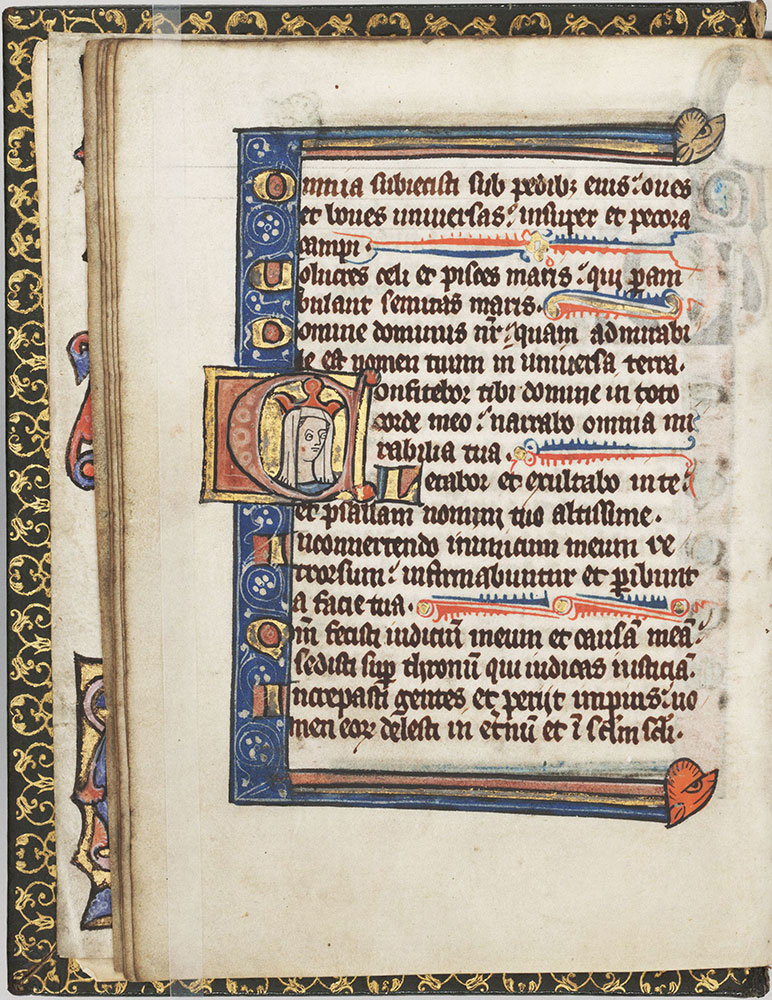 Omnia subiecisti sub pedibꝫ eius: oues
et boues uniuersas: insuper et pecora
campi.
Uolucres celi et pisces maris: qui pam
bulant semitas maris.
Domine dominus nr̄: quam admirabi
le est nomen tuum in uniuersa terra.
Confitebor tibi domine in toto
corde meo: narrabo omnia mi
rabilia tua.
Letabor et exultabo in te:
et psallam nomini tuo altissime.
In conuertendo inimicum meum re
trorsum: infirmabuntur et peribunt
a facie tua.
Qm̄ fecisti iudiciū meum et causā meā:
sedisti sup thronū qui iudicas iusticiā.
Increpasti gentes et perijt impius: no
men eoꝝ delesti in et̄nū et ī sc̄lm sc̄li.